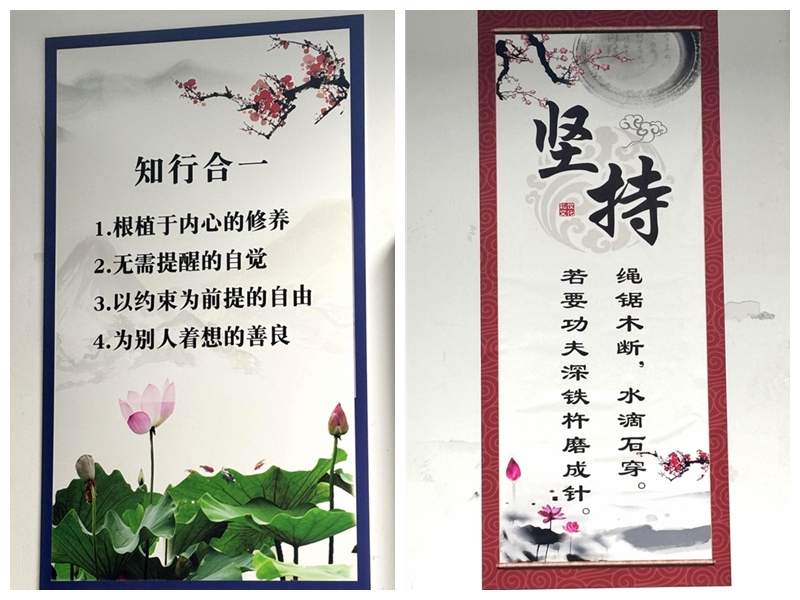 知行合一
1.根植于内心的修养
2.无需提醒的自觉
3.以约束为前提的自由
4.为别人着想的善良
坚持
绳锯木断，水滴石穿。
若要功夫深铁杵磨成针。